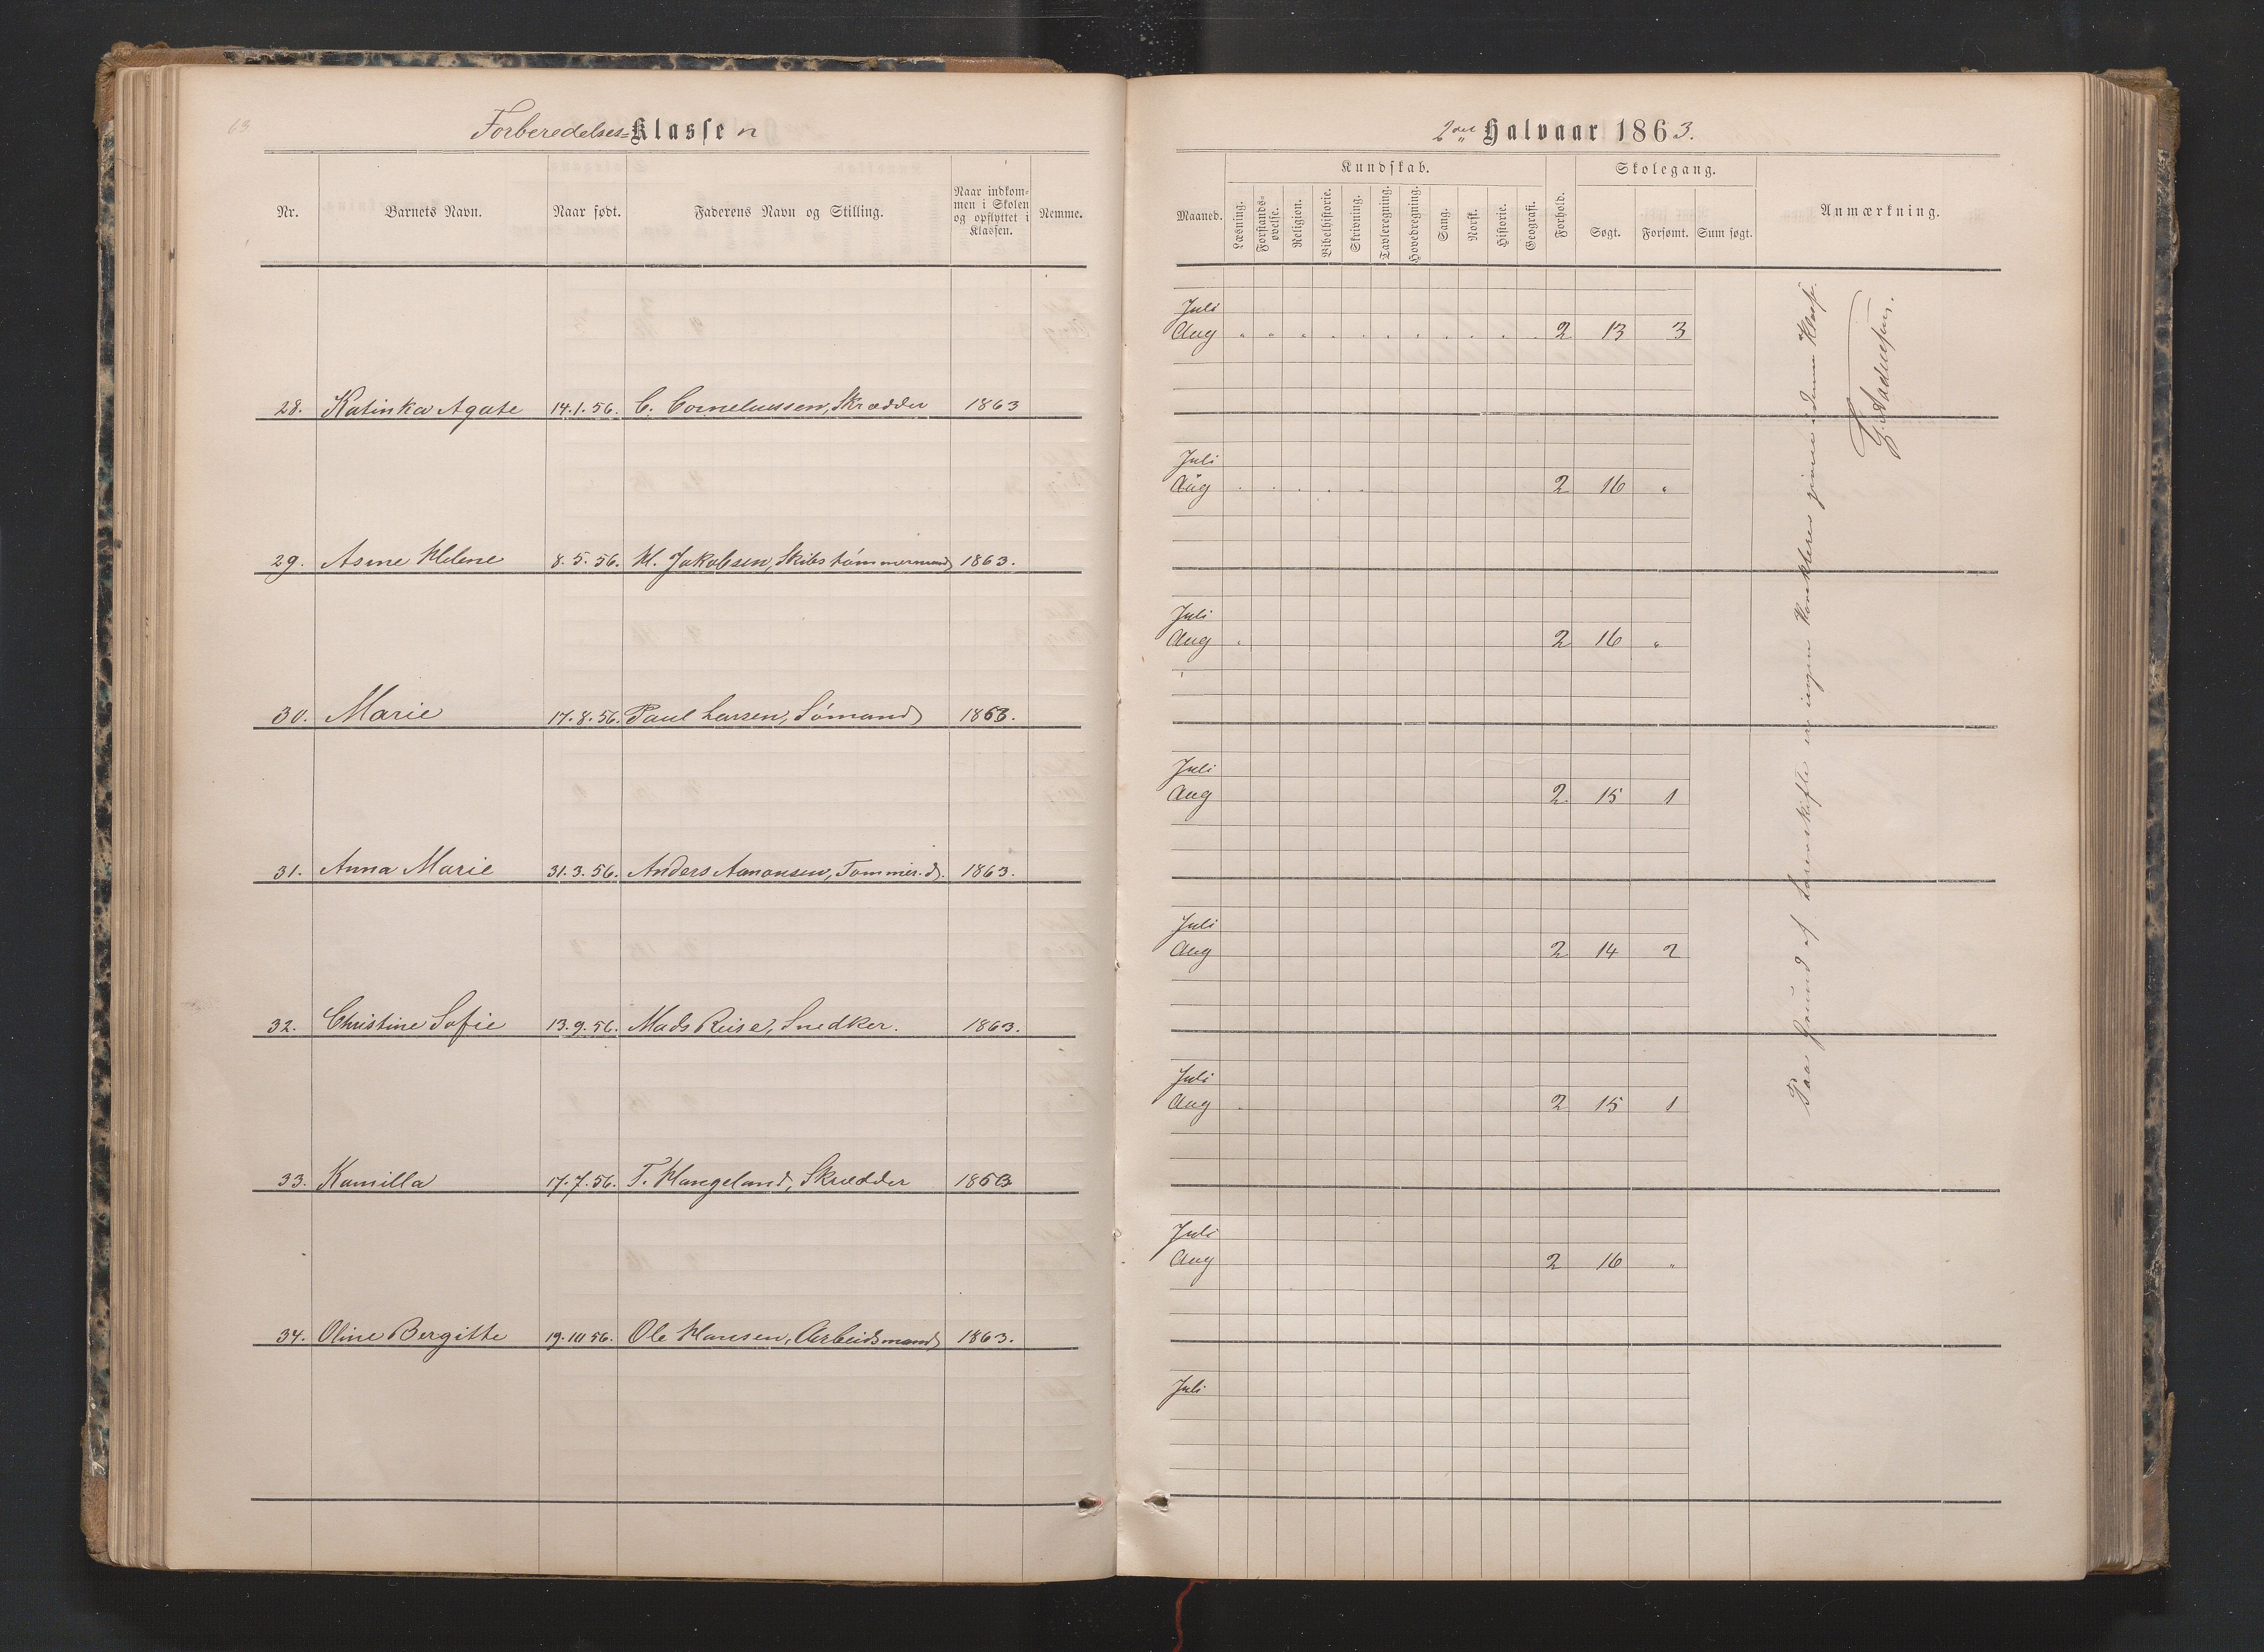 63.
Forberedelses=Klassen
Nr. Barnets Navn. Naar født. Faderens Navn og Stilling. Naar indkommen i Skolen og opflyttet i Klassen. Nemme.
28. Katinka Agate 14.1.56. C. Corneluessen, Skrædder 1863
29. Asine Helene 8.5.56. H. Jakobsen, Skibstømmermand 1863.
30. Marie 17.8.56. Paul Larsen, Sømand 1863.
31. Anna Marie 31.3.56. Anders Aanonsen, Tømmer.d. 1863.
32. Christine Sofie 13.9.56. Mads Reise, Snedker. 1863.
33. Kamilla 17.7.56. T. Hangeland, Skrædder 1863
34. Oline Bergitte 19.10 56. Ole Hansen, Arbeidsmand 1863.
2det Halvaar 1863.
Maaned. Kundskab. Forhold. Skolegang. Anmærkning.
Læsning. Forstands-øvelse. Religion. Bibelhistorie. Skrivning. Tavleregning. Hovedregning. Sang. Norsk. Historie. Geografi. Søgt. Forsømt. Sum søgt.
Juli
Aug " " " " " " " " " " " 2 13 3
Juli
Aug " " " " " 2 16 "
Juli
Aug " 2 16 "
Juli
Aug 2 15 1
Juli
Aug 2 14 2
Juli
Aug " 2 15 1
Juli
Aug 2 16 "
Juli
Paa Grund af Lærerskifte er ingen Karakterer givne i denne Klasse.